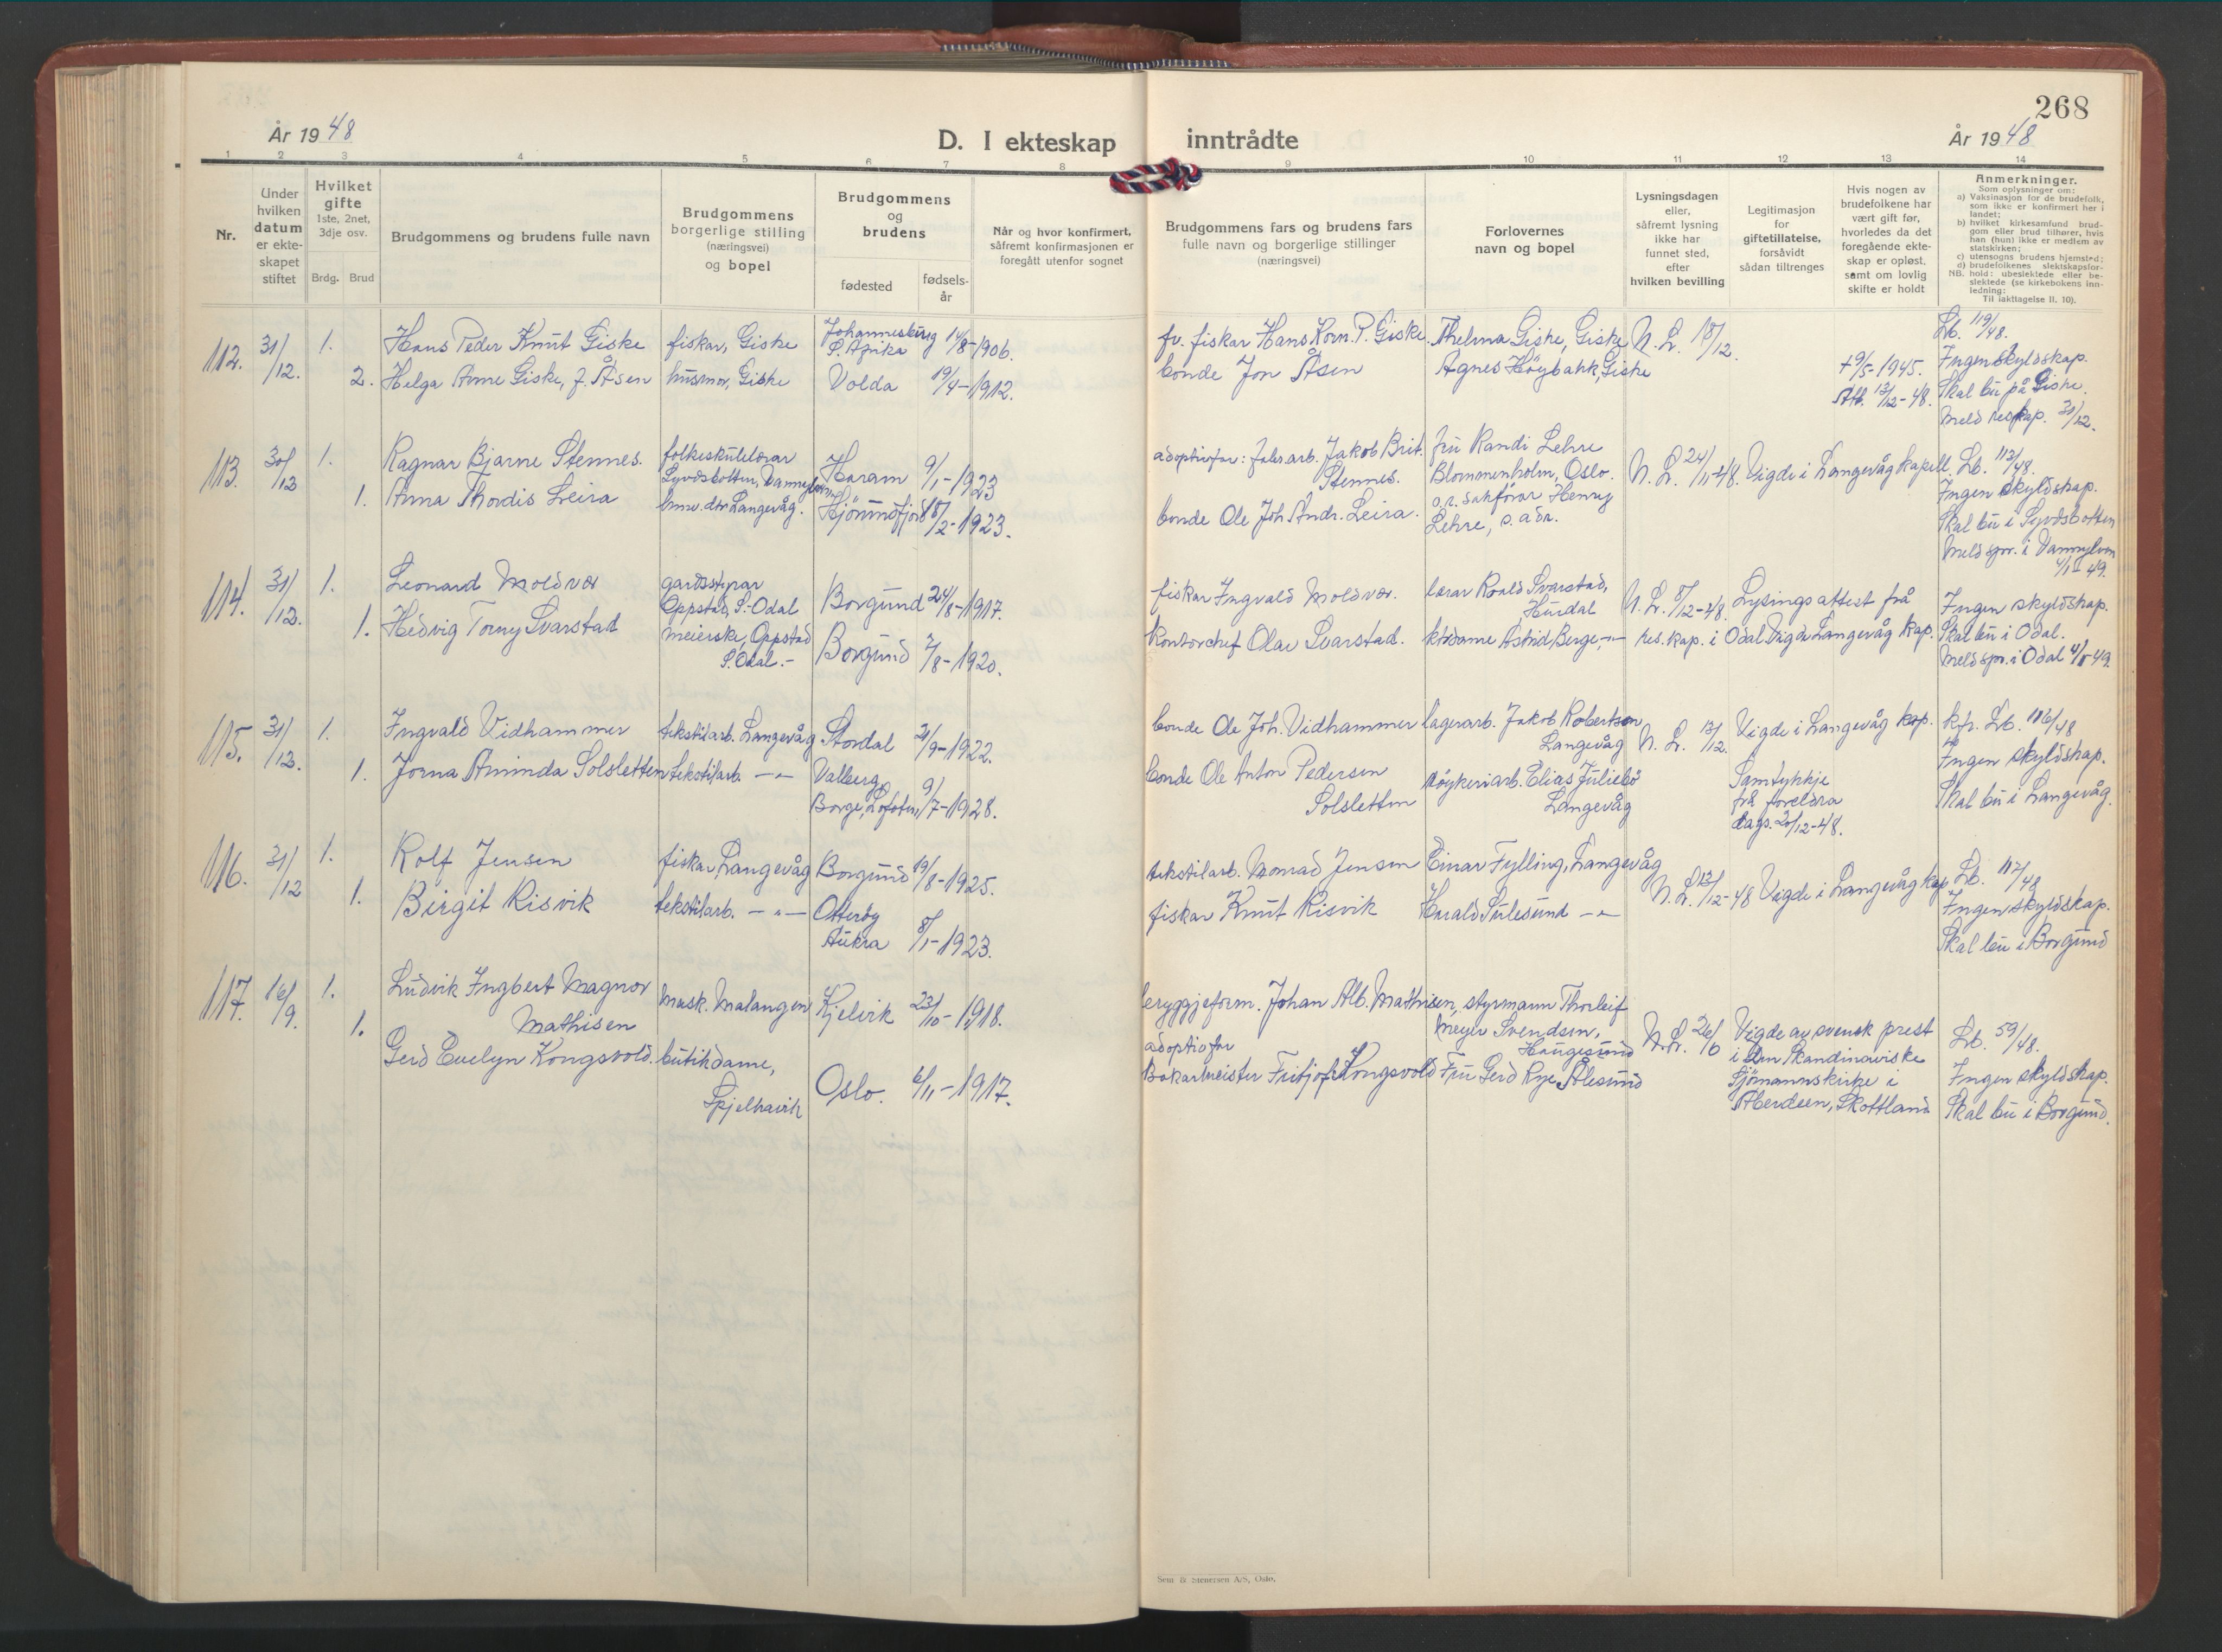 268
År 1948
D. I ekteskap inntrådte
År 1948
1 2 3 4 5 6 7 8 9 10 11 12 13 14
Nr.
Under hvilken datum er ekteskapet stiftet
Hvilket gifte
1ste, 2net, 3dje osv.
Brdg. Brud
Brudgommens og brudens fulle navn
Brudgommens borgerlige stilling (næringsvei) og bopel
Brudgommens og brudens
fødested
fødselsår
Når og hvor konfirmert, såfremt konfirmasjonen er foregått utenfor sognet
Brudgommens fars og brudens fars fulle navn og borgerlige stillinger (næringsvei)
Forlovernes navn og bopel
Lysningsdagen eller, såfremt lysning ikke har funnet sted, efter hvilken bevilling
Legitimasjon for giftetillatelse, forsåvidt sådan tiltrenges
Hvis nogen av brudefolkene har vært gift før, hvorledes da det foregående ekteskap er opløst, samt om lovlig skifte er holdt
Anmerkninger.
Som oplysninger om:
a) Vaksinasjon for de brudefolk, som ikke er konfirmert her i landet;
b) hvilket kirkesamfund brudgom eller brud tilhører, hvis han (hun) ikke er medlem av statskirken;
c) utensogns brudens hjemsted;
d) brudefolkenes slektskapsforhold: ubeslektede eller beslektede (se kirkebokens innledning:
NB. Til iakttagelse II. 10).
112. 31/12. 1. Hans Peder Knut Giske fiskar, Giske Johannesburg S. Afrika 14/8-1906. fv. fiskar Hans Korn. P. Giske Thelma Giske, Giske N. L. 18/12. Lb. 119/48.
2. Helga Anne Giske, f. Åsen husmor, Giske Volda 19/4-1912. bonde Jon Åsen Agnes Höybakk, Giske + 9/5-1945. Att. 13/12-48. Ingen skyldskap.
Skal bu på Giske.
Meld reskap. 31/12.
113. 30/12 1. Ragnar Bjarne Stennes. folkeskulelærar Syvdsbotten, Vannylven Haram 9/1-1923 adoptivfar: fabr.arb. Jakob Brit. Stennes. fru Randi Lehre Blommenholm, Oslo. N. L. 24/11-48. Vigde i Langevåg kapell. Lb. 113/48.
1. Anna Thordis Leira Langevåg. Hjörundfjord 18/2-1923. bonde Ole Joh. Andr. Leira. o.r. sakförar Henry Lehre, s. adr. Ingen skyldskap.
Skal bu i Syvdsbotten
Meld spr. i Vannylven 4/1-49.
114. 31/12. 1. Leonard Moldvær gardsstyrar Oppstad, S.-Odal Borgund 24/8-1917. fiskar Ingvald Moldvær. lærar Roald Svarstad, Hurdal N. L. 8/12-48. Lysingsattest frå res. kap. i Odal. Vigde Langevåg kap. Ingen skyldskap.
1. Hedvig Torny Svarstad meierske, Oppstad S. Odal.- Borgund 7/8-1920. kontorchef Olav Svarstad. Astrid Berge, -"- Skal bu i Odal.
Meld spr. i Odal 4/1-49.
115. 31/12. 1. Ingvald Vidhammer tekstilarb. Langevåg Stordal 21/9-1922. bonde Ole Joh. Vidhammer lagerarb. Jakob Robertson Langevåg N. L. 13/12. Vigde i Langevåg kap. kfr. Lb. 116/48
1. Jorna Aminda Solsletten tekstilarb. -"- Valberg, Borge, Lofoten, 9/7-1928. bonde Ole Anton Pedersen Solsletten röykeriarb. Elias Juliebö Langevåg Samtykkje frå foreldra dags. 20/12-48. Ingen skyldskap.
Skal bu i Langevåg.
116. 31/12 1. Rolf Jensen fiskar, Langevåg Borgund 19/8-1925. tekstilarb. Konrad Jensen Einar Fylling, Langevåg N. L. 13/12-48 Vigde i Langevåg kap. Lb. 117/48
1. Birgit Risvik tekstilarb. -"- Otteröy Aukra 8/1-1923. fiskar Knut Risvik Harald Sulesund -"- Ingen skyldskap.
Skal bu i Borgund
117. 16/9. 1. Ludvik Ingbert Magnor Mathisen mask. Malangen Kjelvik 23/10-1918. bryggjeform. Johan Alb. Mathisen, styrmann Thorleif Meyer Svendsen, Haugesund N. L. 26/6 Vigde av svensk prest i den Skandinaviske Sjömannskirke i Aberdeen, Skottland Lb. 59/48.
1. Gerd Evelyn Kongsvold. butikdame, Spjelkavik Oslo. 6/11-1917. adoptivfar Bakarmeister Fritjof Kongsvold Fru Gerd Rye, Ålesund Ingen skyldskap.
Skal bu i Borgund.
Sem & Stenersen A/S, Oslo.